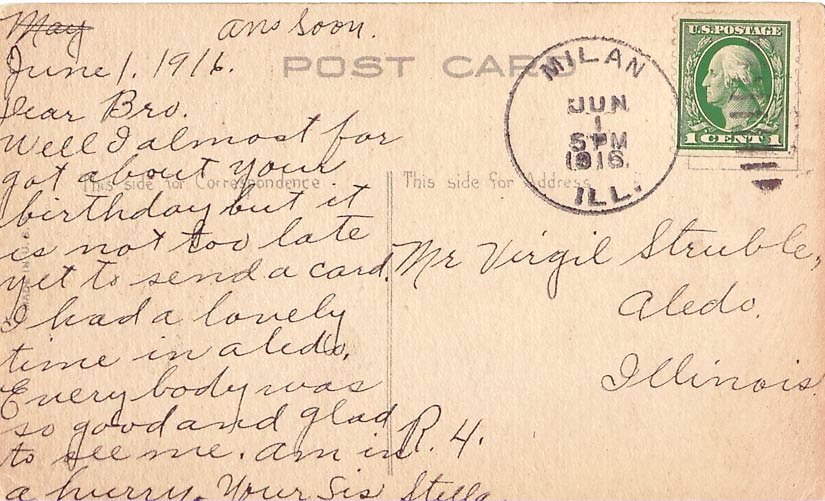 May
ans soon.
June 1. 1916.
POST CARD
Dear Bro.
Well I almost for
got about your
birthday but it
is not too late
yet to send a card.
I had a lovely
time in aledo.
Every body was
so good and glad
to see me. am in
a hurry. Your Sis Stella
This side for Correspondence
This side for Address
MADE IN U.S.A.
MILAN
JUN
1
5 PM
1916.
ILL.
U.S.POSTAGE
1 CENT 1
Mr Virgil Struble,
Aledo.
Illinois
R. 4.